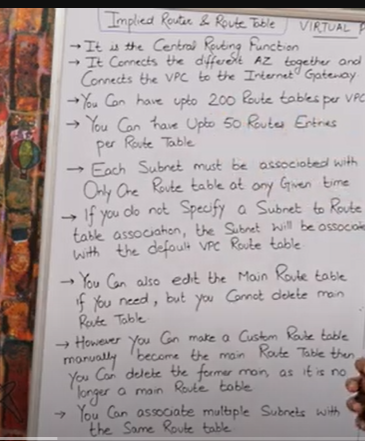 Implied Router & Route Table VIRTUAL
→ It is the Central Routing Function
→ It Connects the different AZ together and
Connects the VPC to the Internet Gateway
→ You Can have upto 200 Route tables per VPC
→ You Can have Upto 50 Routes Entries
per Route Table
→ Each Subnet must be associated with
Only One Route table at any Given time
→ If you do not Specify a Subnet to Route
table association, the Subnet will be associate
with the default VPC Route table
→ You Can also edit the Main Route table
if You need, but you Cannot delete main
Route Table
→ However You Can make a Custom Route table
manually become the main Route Table then
You Can delete the former main, as it is no
longer a main Route table
→ You Can associate multiple Subnets with
the Same Route table